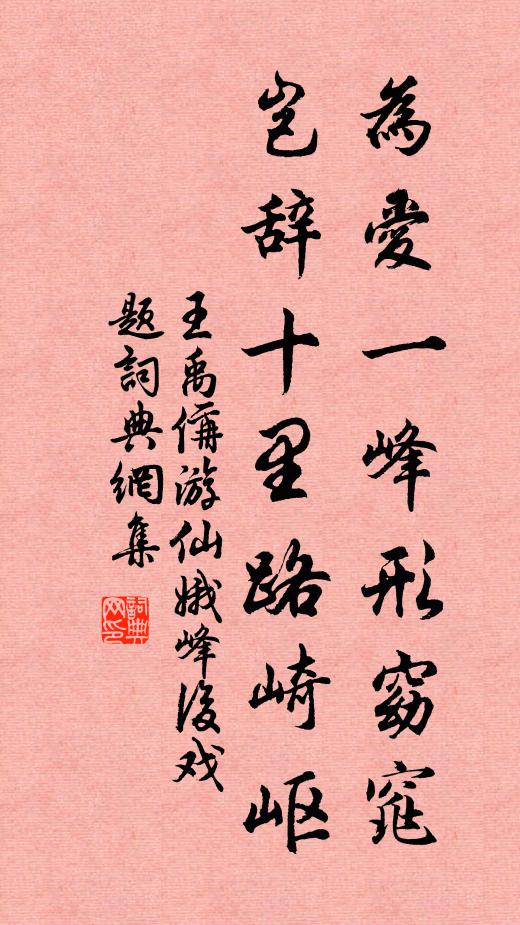 為愛一峰形窈窕
岂辞十里路崎岖
王禹偁游仙娥峰後戏
题詞典網集
詞典网印